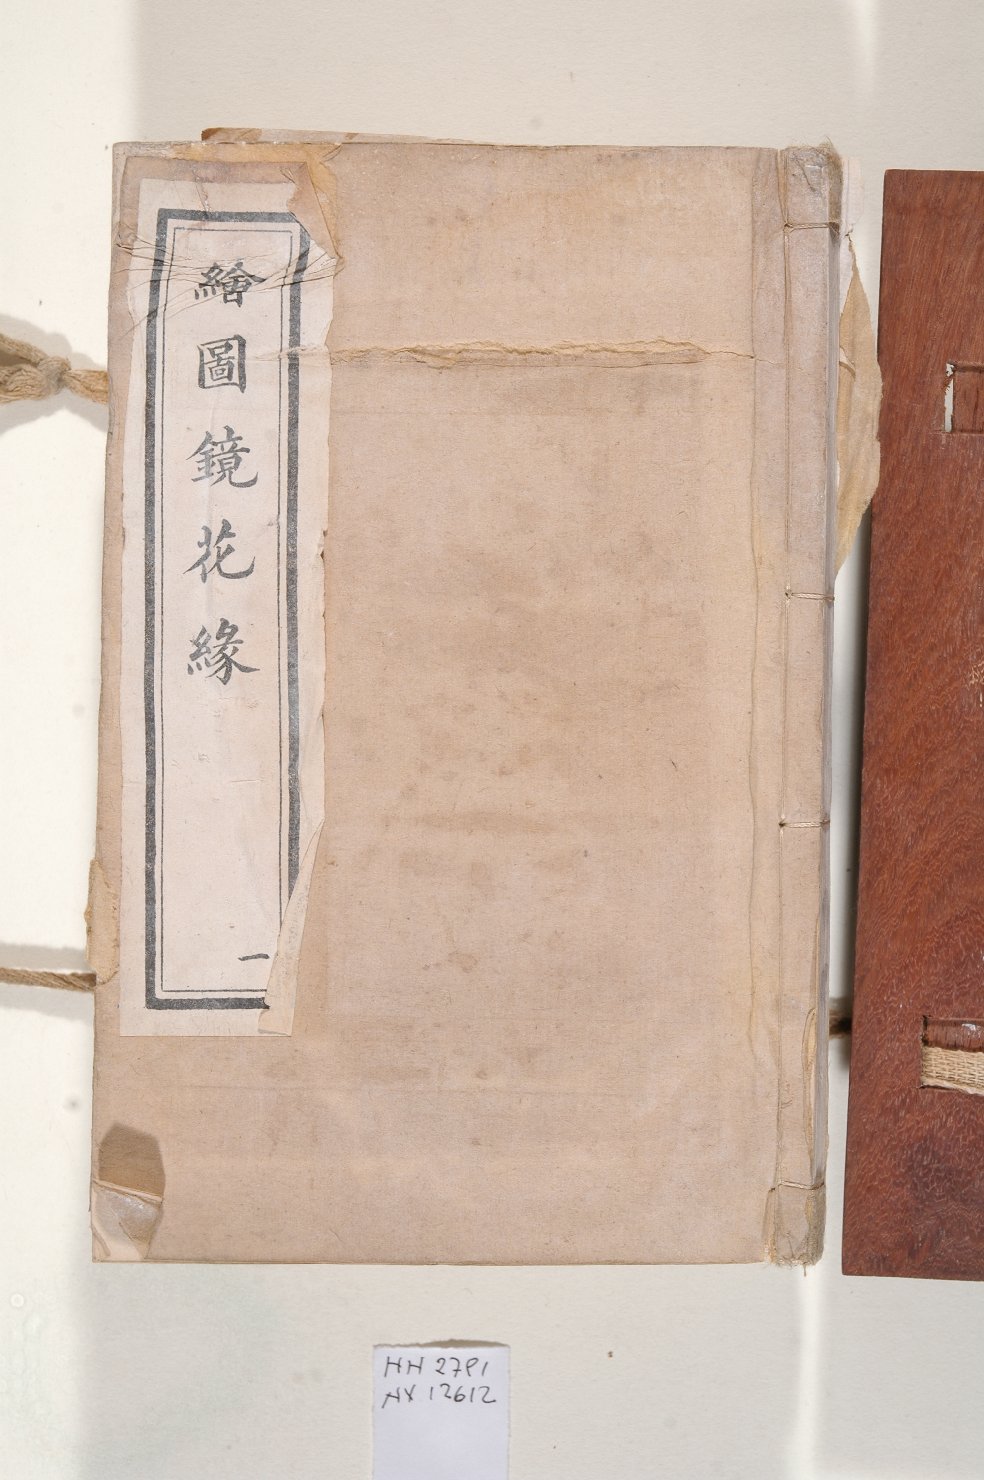 繪圖鏡花緣
一
HH 2791
NX 12612